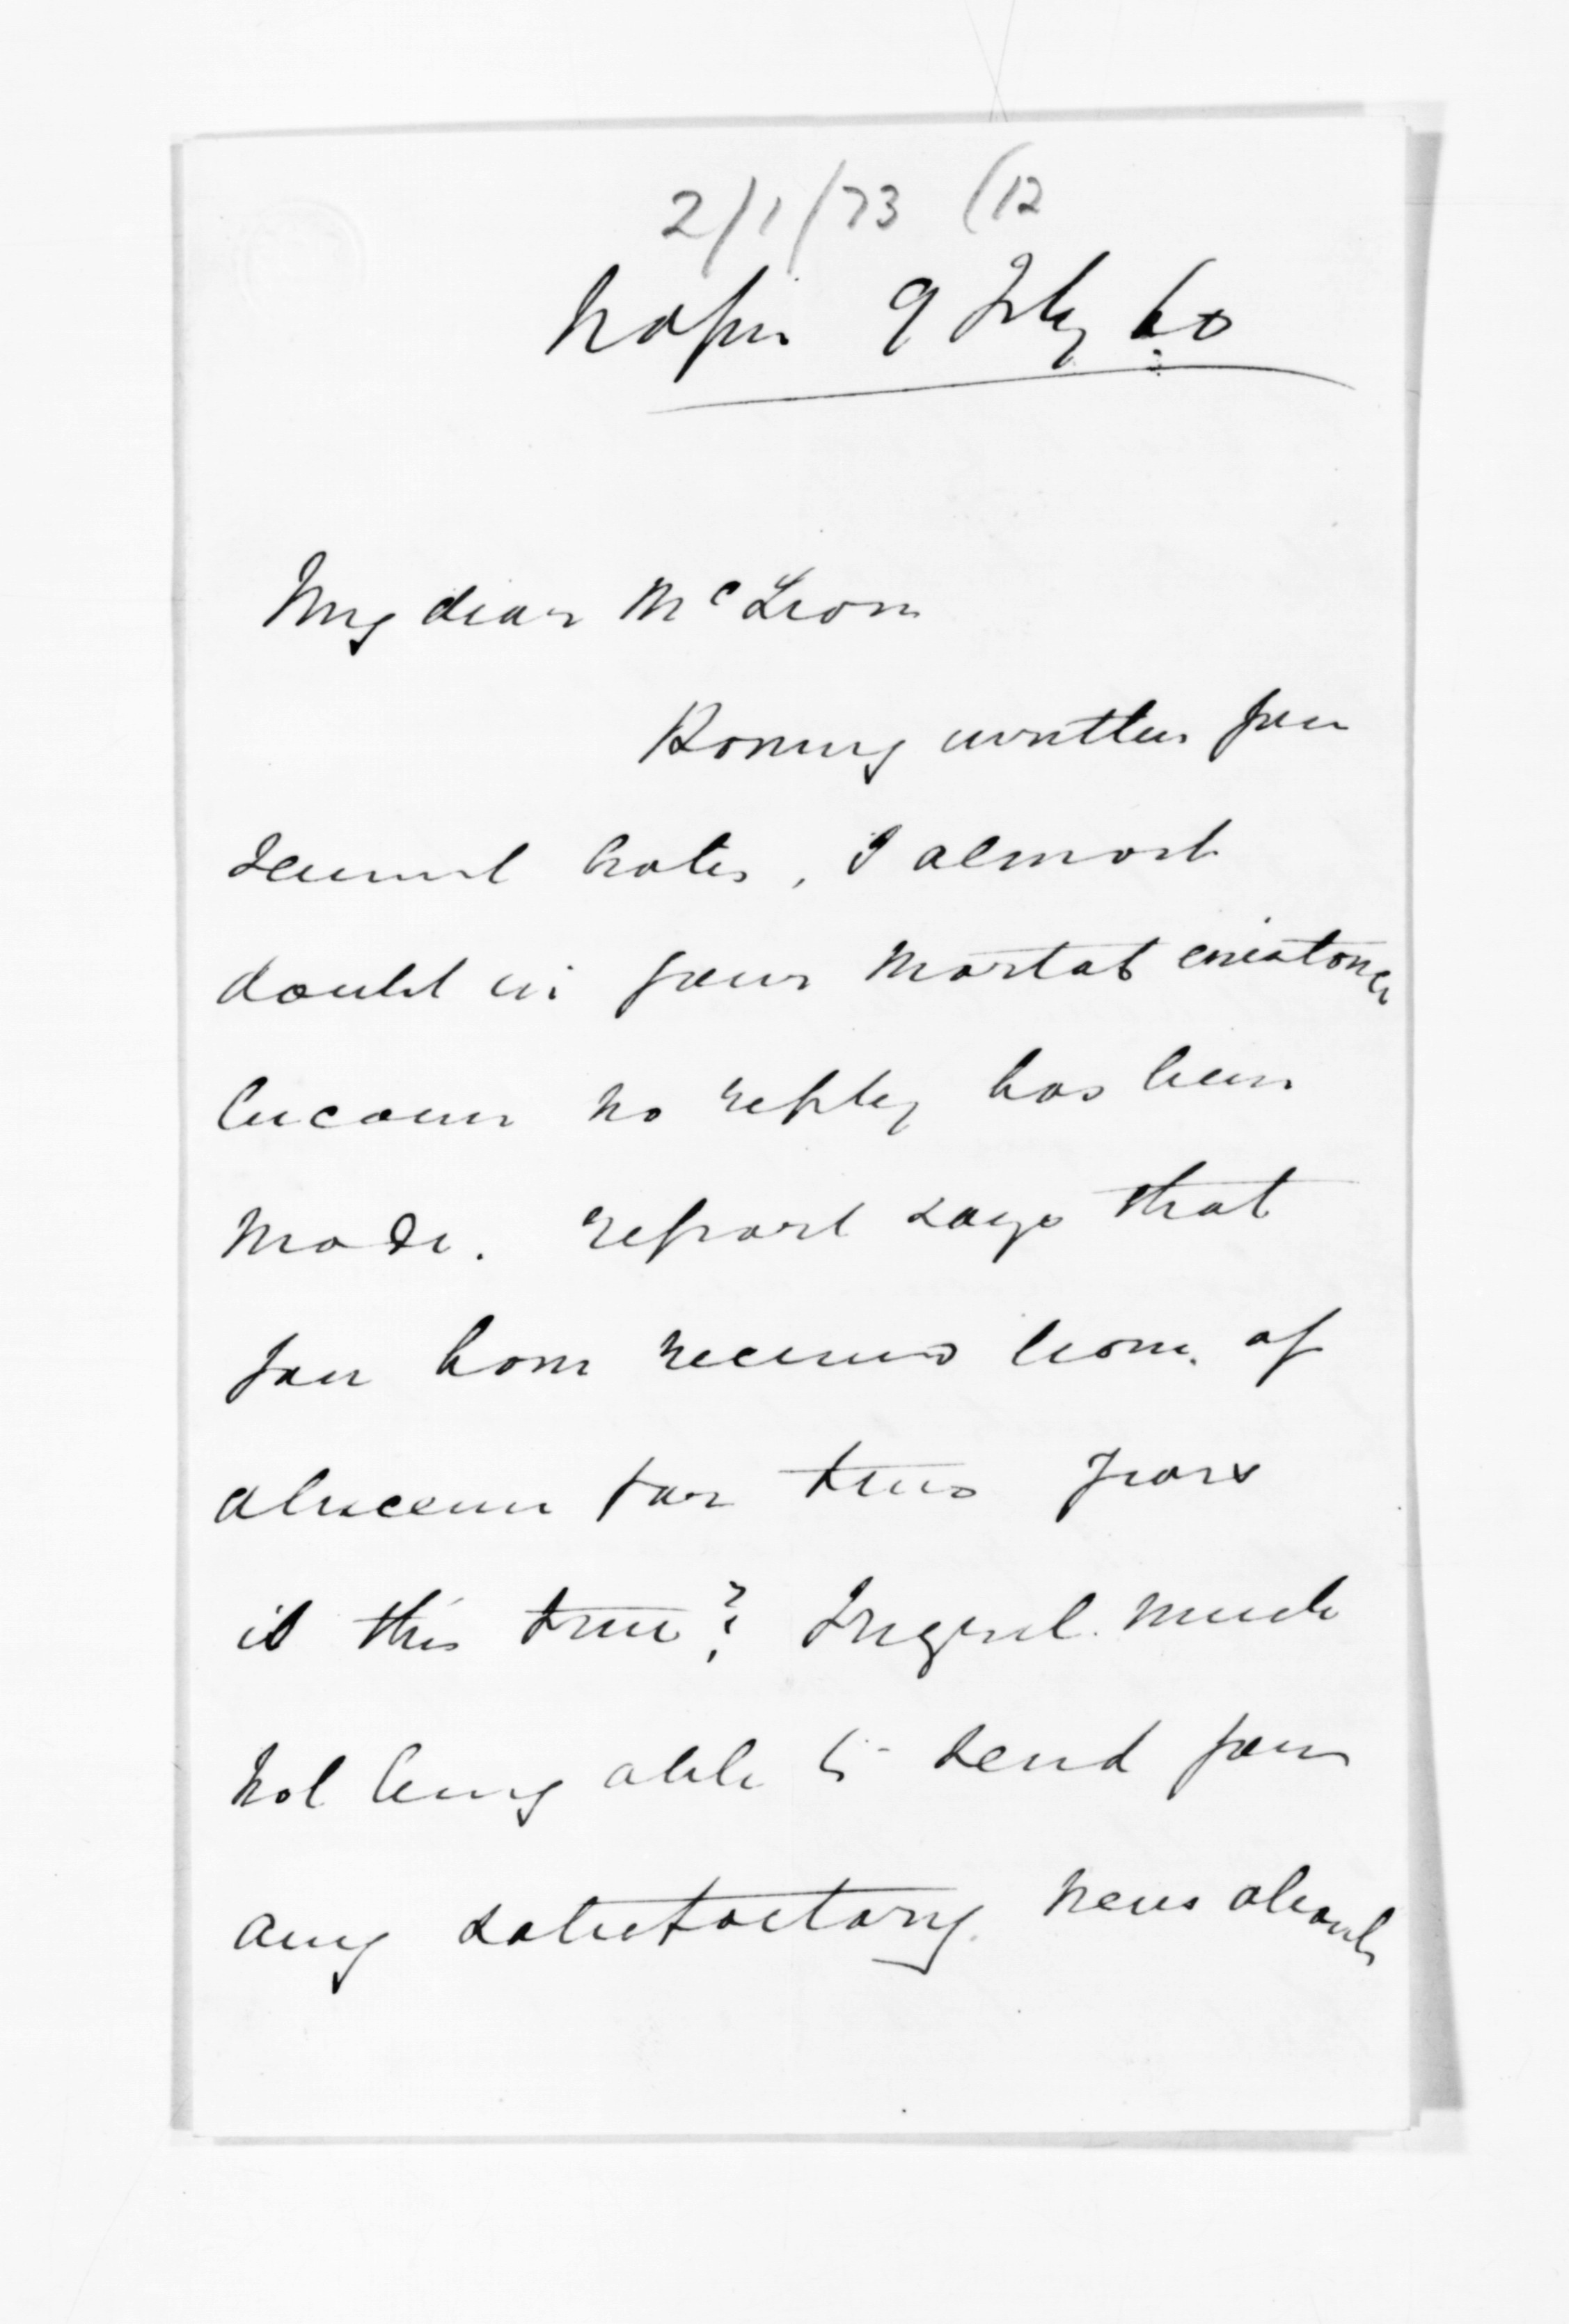 2/1/73 (12
Napier 9 July 60
My dear McLean
Having written you
several notes, I almost
doubt in your mortal existence
because no reply has been
made. report says that
you have received leave of
abscence for two years
is this true? I regret much
not being able to send you
any satisfactory news about